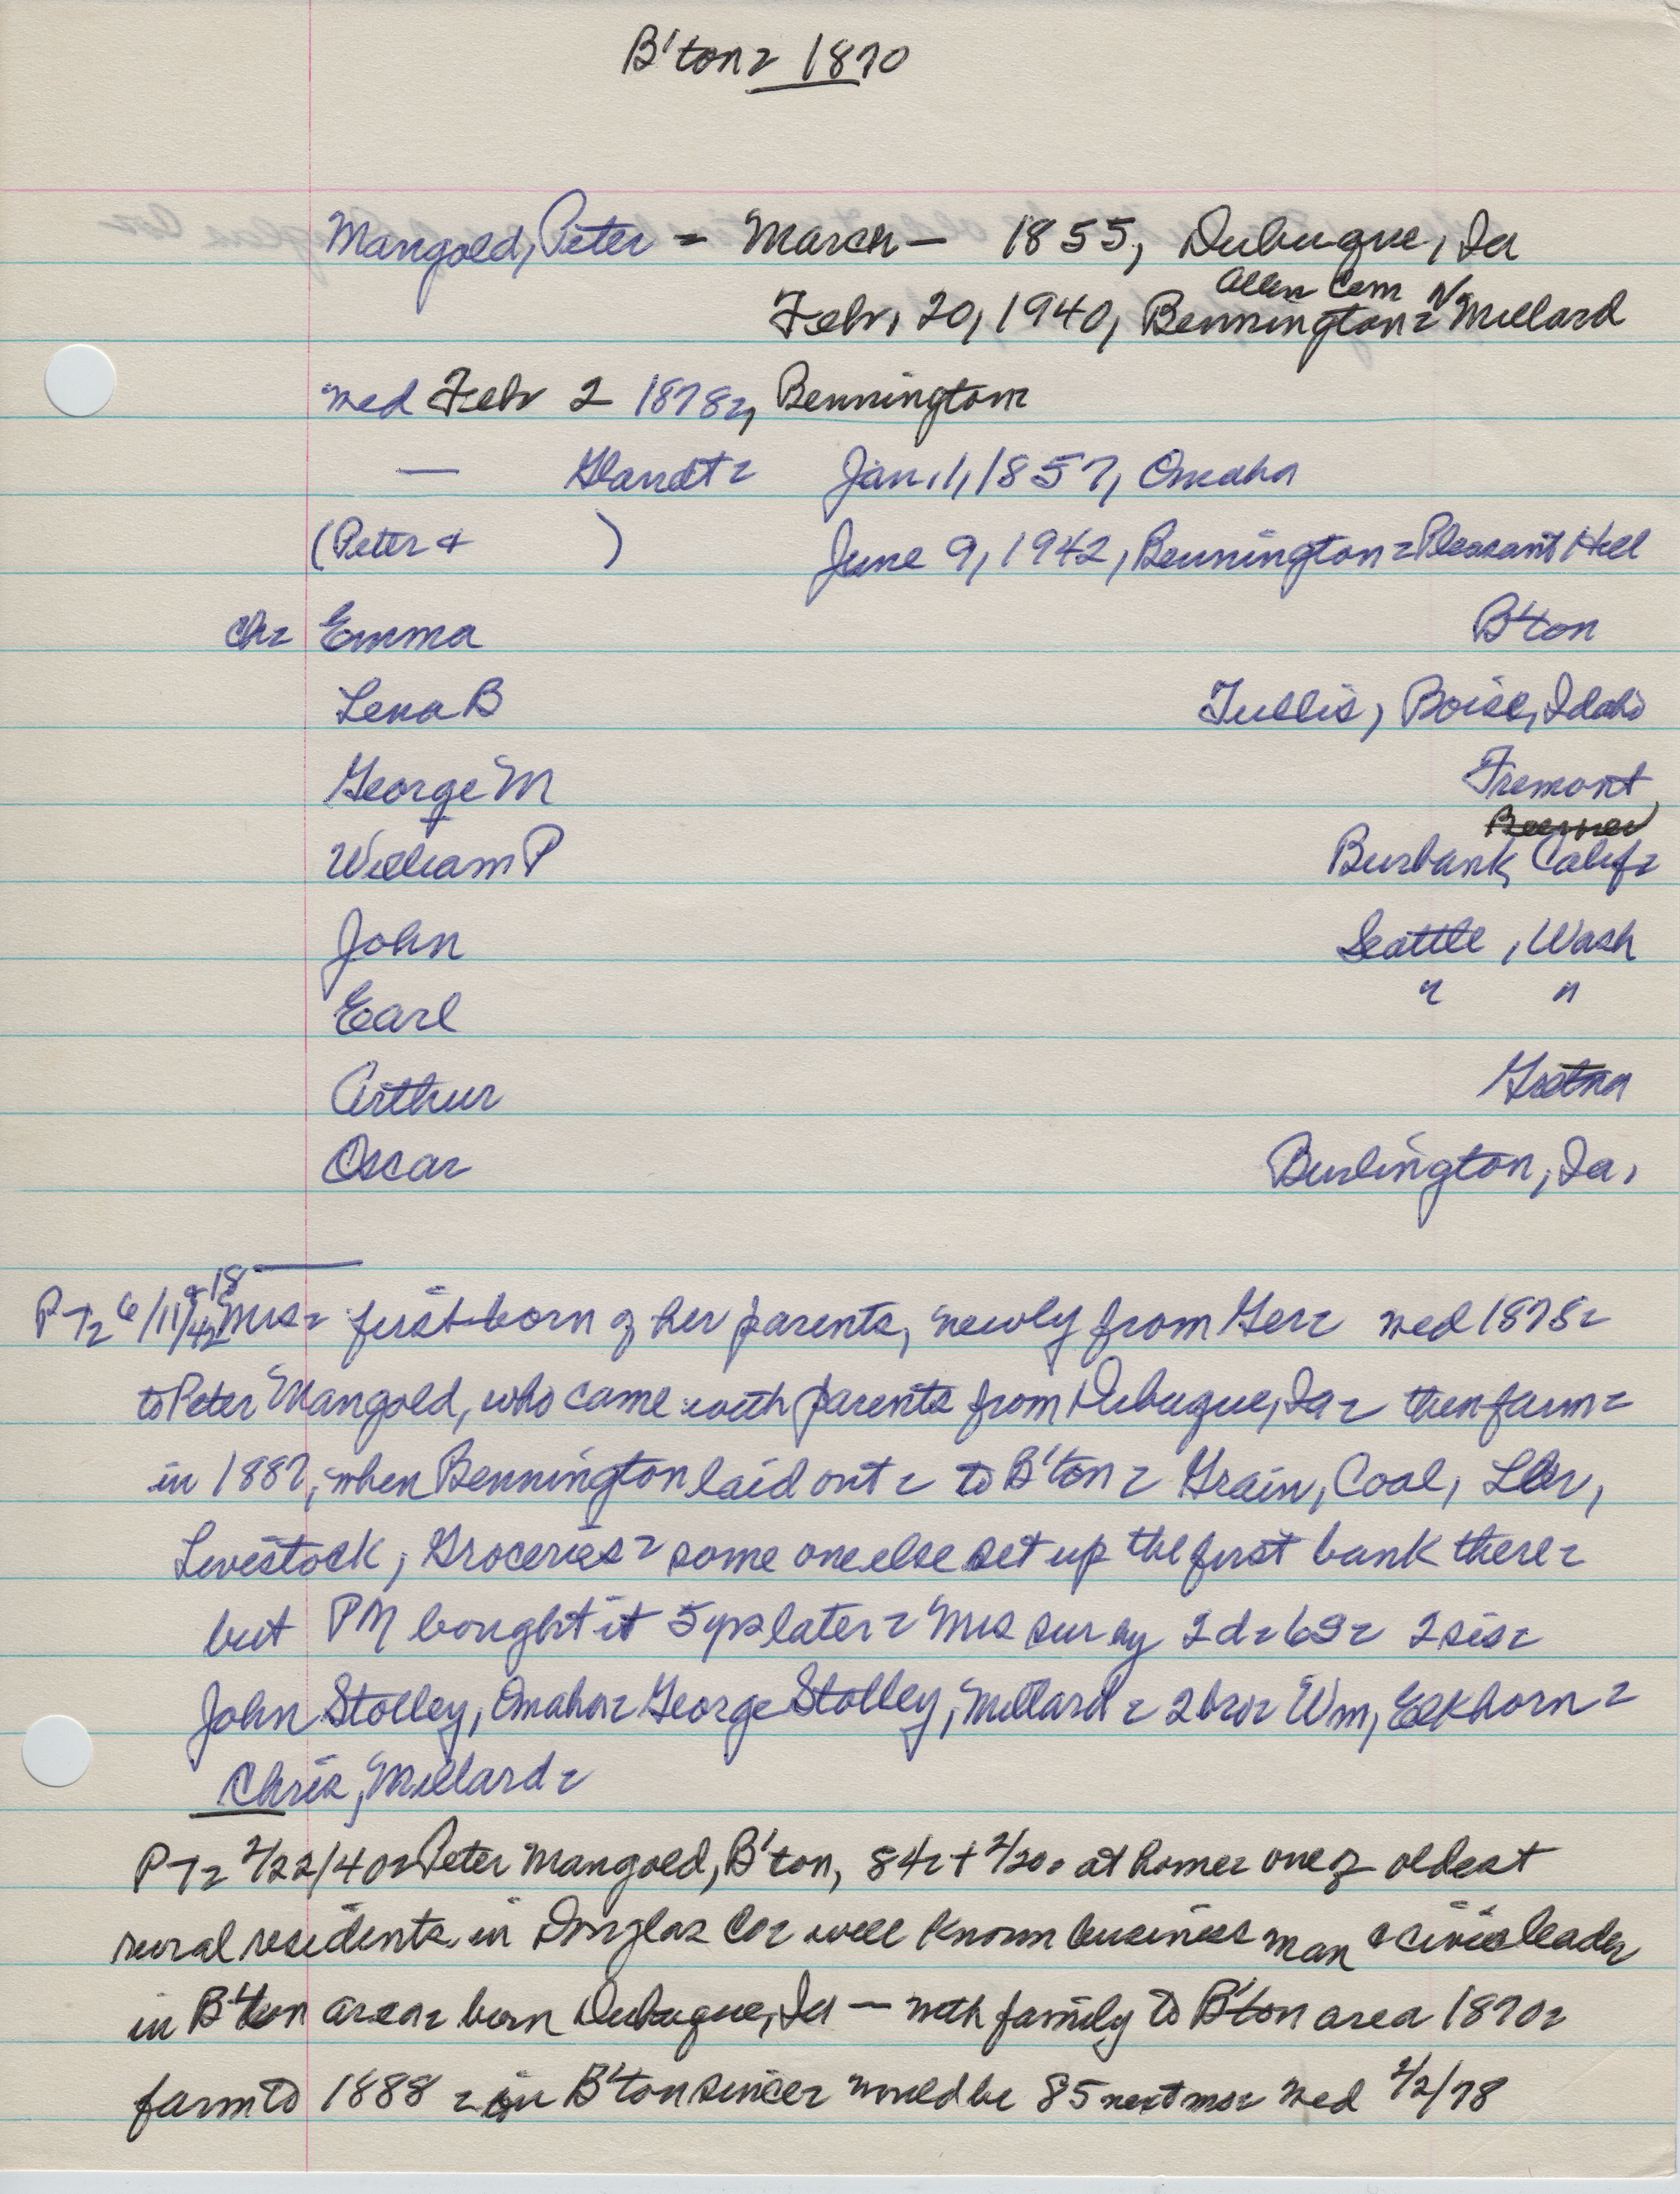 B'ton - 1870
Mangold, Peter - March - 1855, Dubuque, Ia
Allen Cem N
Febr, 20, 1940, Bennington - Millard
med Febr 2 1878 -, Bennington -
— Glandt - Jan, 1, 1857, Omaha
(Peter & ) June 9, 1942, Bennington - Pleasant Hill
ch - Emma B'ton
Lena B Tullis, Boise, Idaho
George M Fremont
William P Burbank, Calif -
John Seattle, Wash
Earl " "
Arthur Gretna
Oscar Burlington, Ia,
& 18
P T - 6/11/42 Mrs - first born of her parents, newly from Ger - med 1878 -
to Peter Mangold, who came with parents from Dubuque, Ia - then farm -
in 1887, when Bennington laid out - to B'ton - Grain, Coal, Lbr,
Livestock, Groceries - some one else set up the first bank there -
but PM bought it 5 yrs later - Mrs sur by 2 d - 6 S - 2 sis -
John Stolley, Omaha - George Stolley, Millard - 2 bro - Wm, Elkhorn -
Chris, Millard -
P T - 2/22/40 - Peter Mangold, B'ton, 84 - + 2/20. at home - one of oldest
rural residents in Douglas Co - well known business man & civic leader
in B'ton area - born Dubuque, Ia — with family to B'ton area 1870 -
farm to 1888 - in B'ton since - would be 85 next mo - med 2/2/78